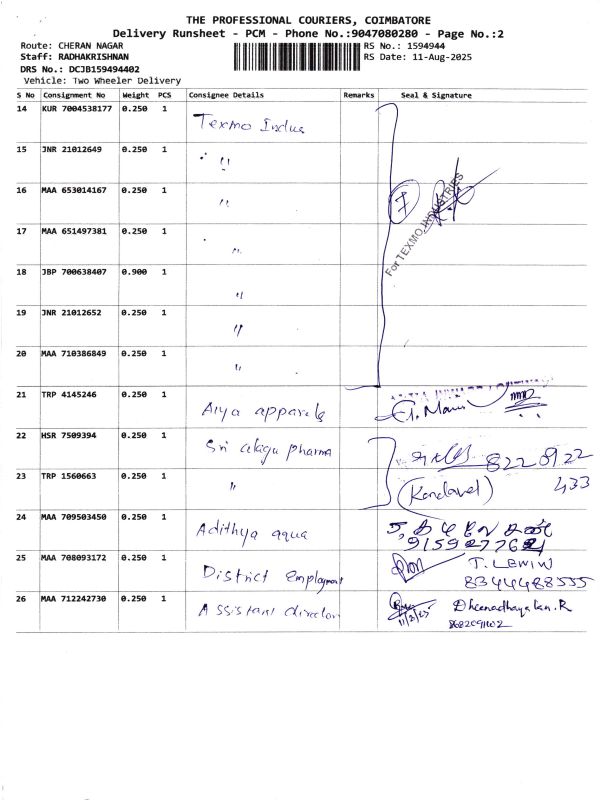 THE PROFESSIONAL COURIERS, COIMBATORE
Delivery Runsheet - PCM - Phone No.:9047080280 - Page No.:2
Route: CHERAN NAGAR
RS No.: 1594944
Staff: RADHAKRISHNAN
RS Date: 11-Aug-2025
DRS No.: DCJB159494402
Vehicle: Two Wheeler Delivery
S No Consignment No Weight PCS Consignee Details Remarks Seal & Signature
14 KUR 7004538177 0.250 1 Texmo Indus
15 JNR 21012649 0.250 1 "
16 MAA 653014167 0.250 1 " 7
For TEXMO INDUSTRIES
17 MAA 651497381 0.250 1 "
18 JBP 700638407 0.900 1 "
19 JNR 21012652 0.250 1 "
20 MAA 710386849 0.250 1 "
21 TRP 4145246 0.250 1 Aiya apparels
22 HSR 7509394 0.250 1 Sri alagu pharma 8220922
433
23 TRP 1560663 0.250 1 " (Kandavel)
24 MAA 709503450 0.250 1 Adithya aqua
25 MAA 708093172 0.250 1 District employment T. LEWIN
8344488555
26 MAA 712242730 0.250 1 Assistant director Dheenadhayalan.R
11/8/25